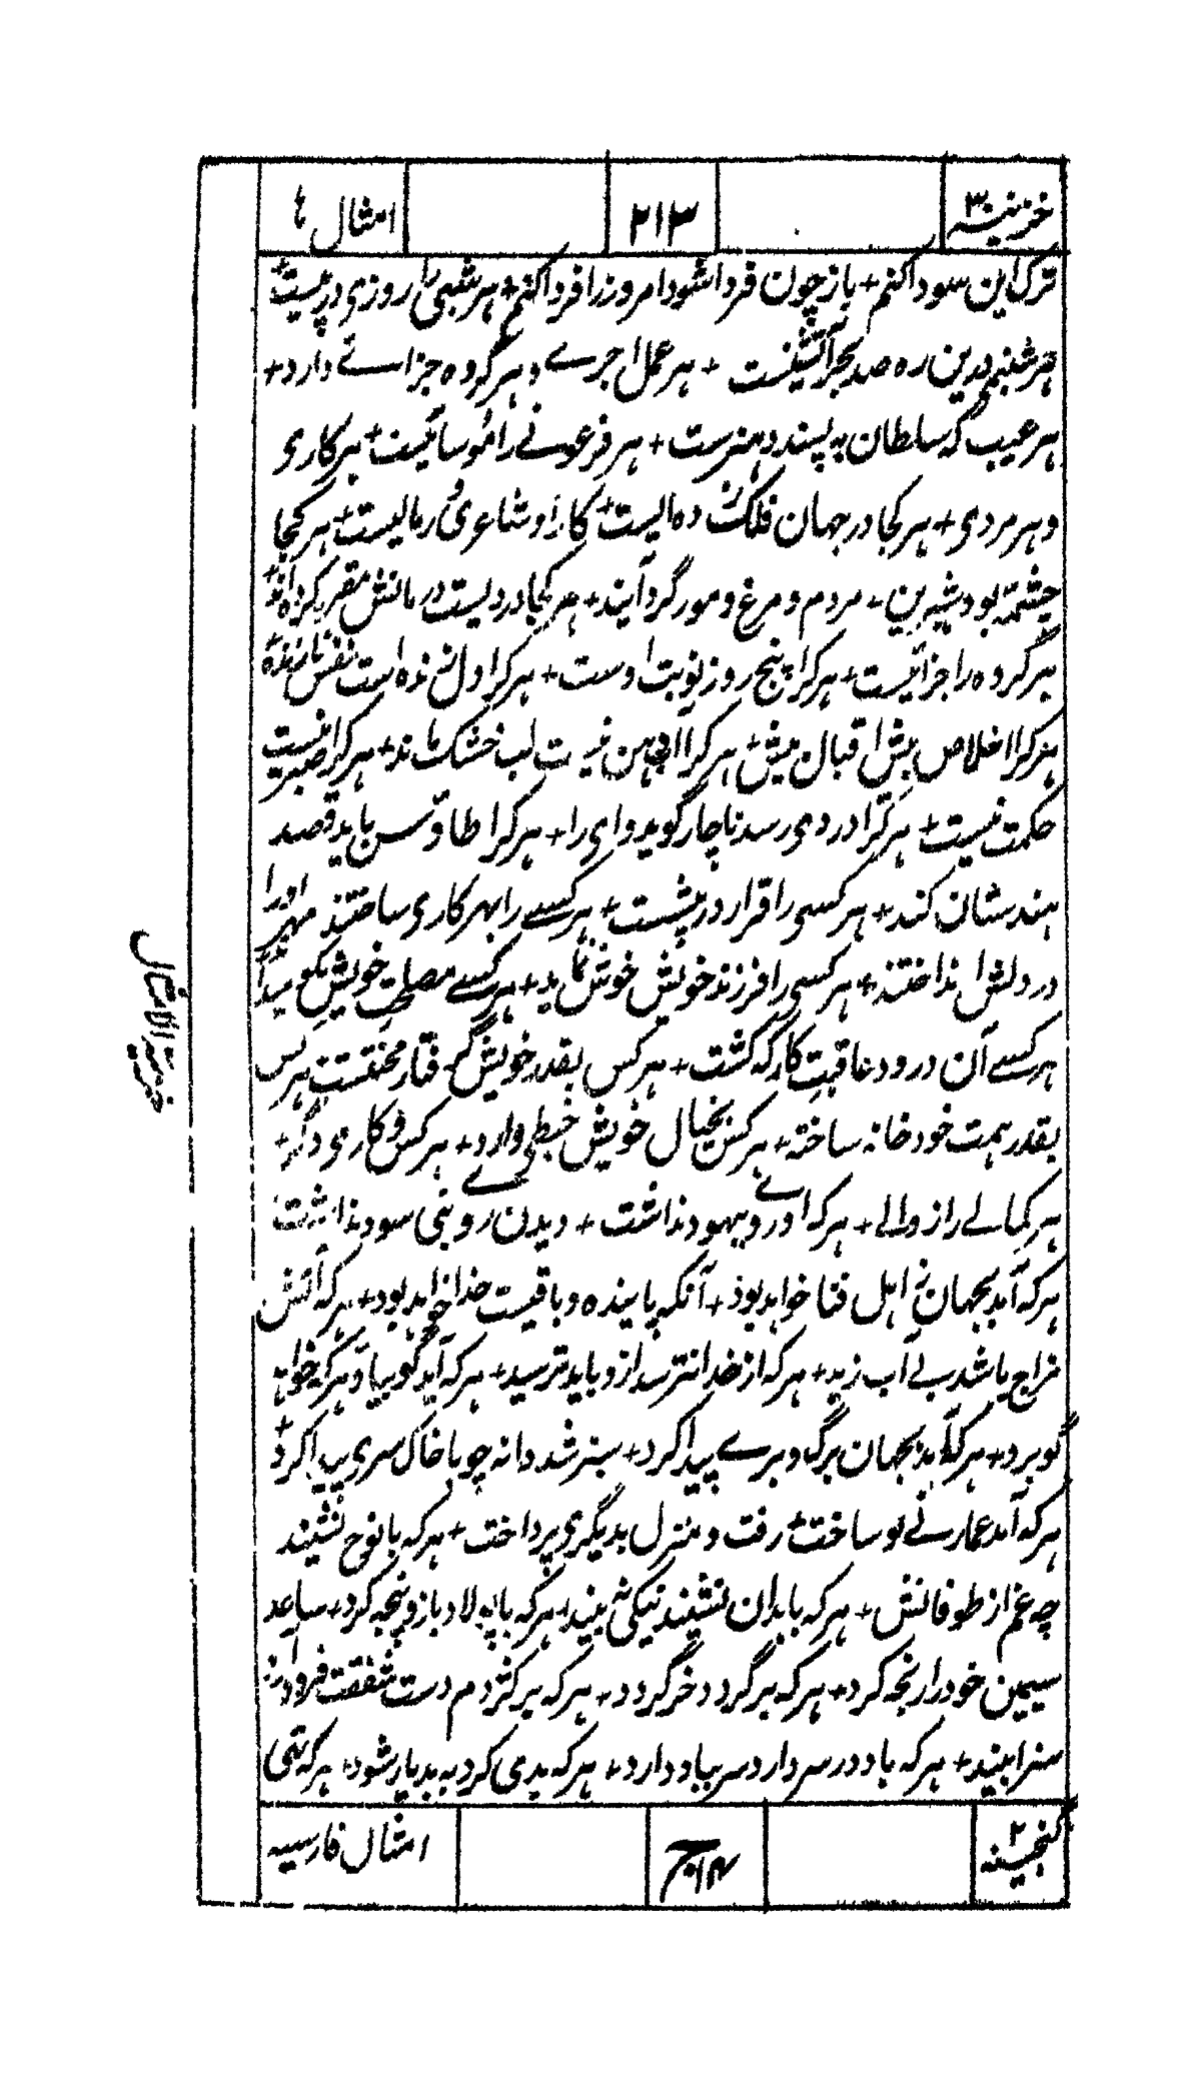 خزینہ ۳
۲۱۳
امثال
ترک این سودا کنم + باز چون فردا شود امروز را فردا کنم + هر شبی را روزی در پیست +
هر شبنمی درین ره صد بحر آتشینست + هر عمل اجرے و هر کرده جزائے دارد +
هر عیب که سلطان به پسندد هنرست + هر فرعونے را موسائیست + هر کاری
و هر مردی + هر کجا در جهان فلک زده ایست + کار او شاعری و رمالیست + هر کجا
چشمۀ بود شیرین + مردم و مرغ و مور گرد آیند + هر کجا دردیست درمانش مقرر کرده اند +
هر کرده را جزائیست + هر کرا پنج روز نوبت اوست + هر کرا دل زنده است نفس
هر کرا اخلاص بیش اقبال بیش + هر کرا لب خشک ماند + هر کرا صبر نیست
حکمت نیست + هر کرا دردی رسد ناچار گوید وای را + هر کرا طاؤس باید قصد
هندستان کند + هر کسی را قرار در پیشست + هر کسے را بهر کاری ساختند مهر او را
در دلش انداختند + هر کسی را فرزند خویش خوش نماید + هر کسے مصلحت خویش نکو میداند
هر کسے آن درود عاقبت کار که کشت + هر کس بقدر خویش گرفتار محنتست هر کس
بقدر همت خود خانه ساخته + هر کس بخیال خویش خبطی دارد + هر کس و کاری دگر +
هر کمالے را زوالے + هر که او روے بهبود نداشت + دیدن روی نبی سود نداشت
هر که آمد بجهان ز اهل فنا خواهد بود + آنکه پاینده و باقیست خدا خواهد بود + هر که آتش
مزاج باشد بے آب زید + هر که از خدا نترسد ازو باید ترسید + هر که آید گو بیا و هر که خواهد
گو برد + هر که آمد بجهان برگ و برے پیدا کرد + سبز شد دانه چو با خاک سری پیدا کرد +
هر که آمد عمارتے نو ساخت + رفت و منزل بدیگری پرداخت + هر که با نوح نشیند
چه غم از طوفانش + هر که با بدان نشیند نیکی نه بیند + هر که با پولاد بازو پنجه کرد + ساعد
سیمین خود را رنجه کرد + هر که بر گردد خر گردد + هر که بر کژدم دست شفقت فرود آرد
سزا بیند + هر که باد در سر دارد سر بباد دارد + هر که بدی کرد به بد یار شود + هر که بتی
خزینة الامثال
گنجینہ ۲
امثال فارسیہ